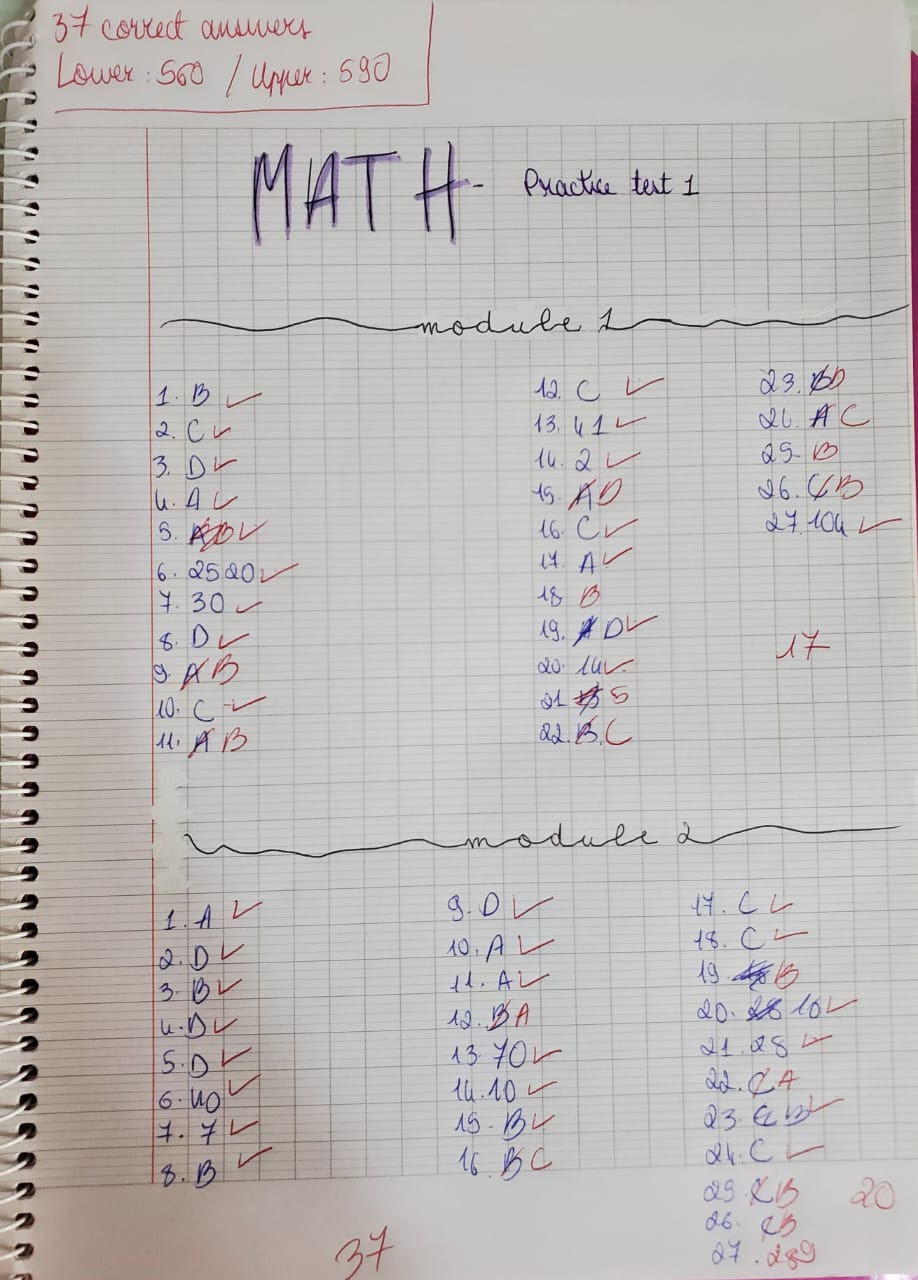 37 correct answers
Lower : 560 / Upper : 590
MATH - Practice test 1
module 1
1. B ✓
2. C ✓
3. D ✓
4. A ✓
5. B ✓
6. 2520 ✓
7. 30 ✓
8. D ✓
9. A B
10. C ✓
11. A B
12. C ✓
13. 41 ✓
14. 2 ✓
15. A D
16. C ✓
17. A ✓
18 B
19. A D ✓
20. 14 ✓
21 5
22. B. C
23. B D
24. A C
25. B
26. C B
27. 104 ✓
17
module 2
1. A ✓
2. D ✓
3. B ✓
4. D ✓
5. D ✓
6. 40 ✓
7. 7 ✓
8. B ✓
9. D ✓
10. A ✓
11. A ✓
12. B A
13. 70 ✓
14. 10 ✓
15. B ✓
16 B C
17. C ✓
18. C ✓
19. B
20. 28 10 ✓
21. 28 ✓
22. C A
23. C B ✓
24. C ✓
25. C B
26. C B
27. 289
20
37